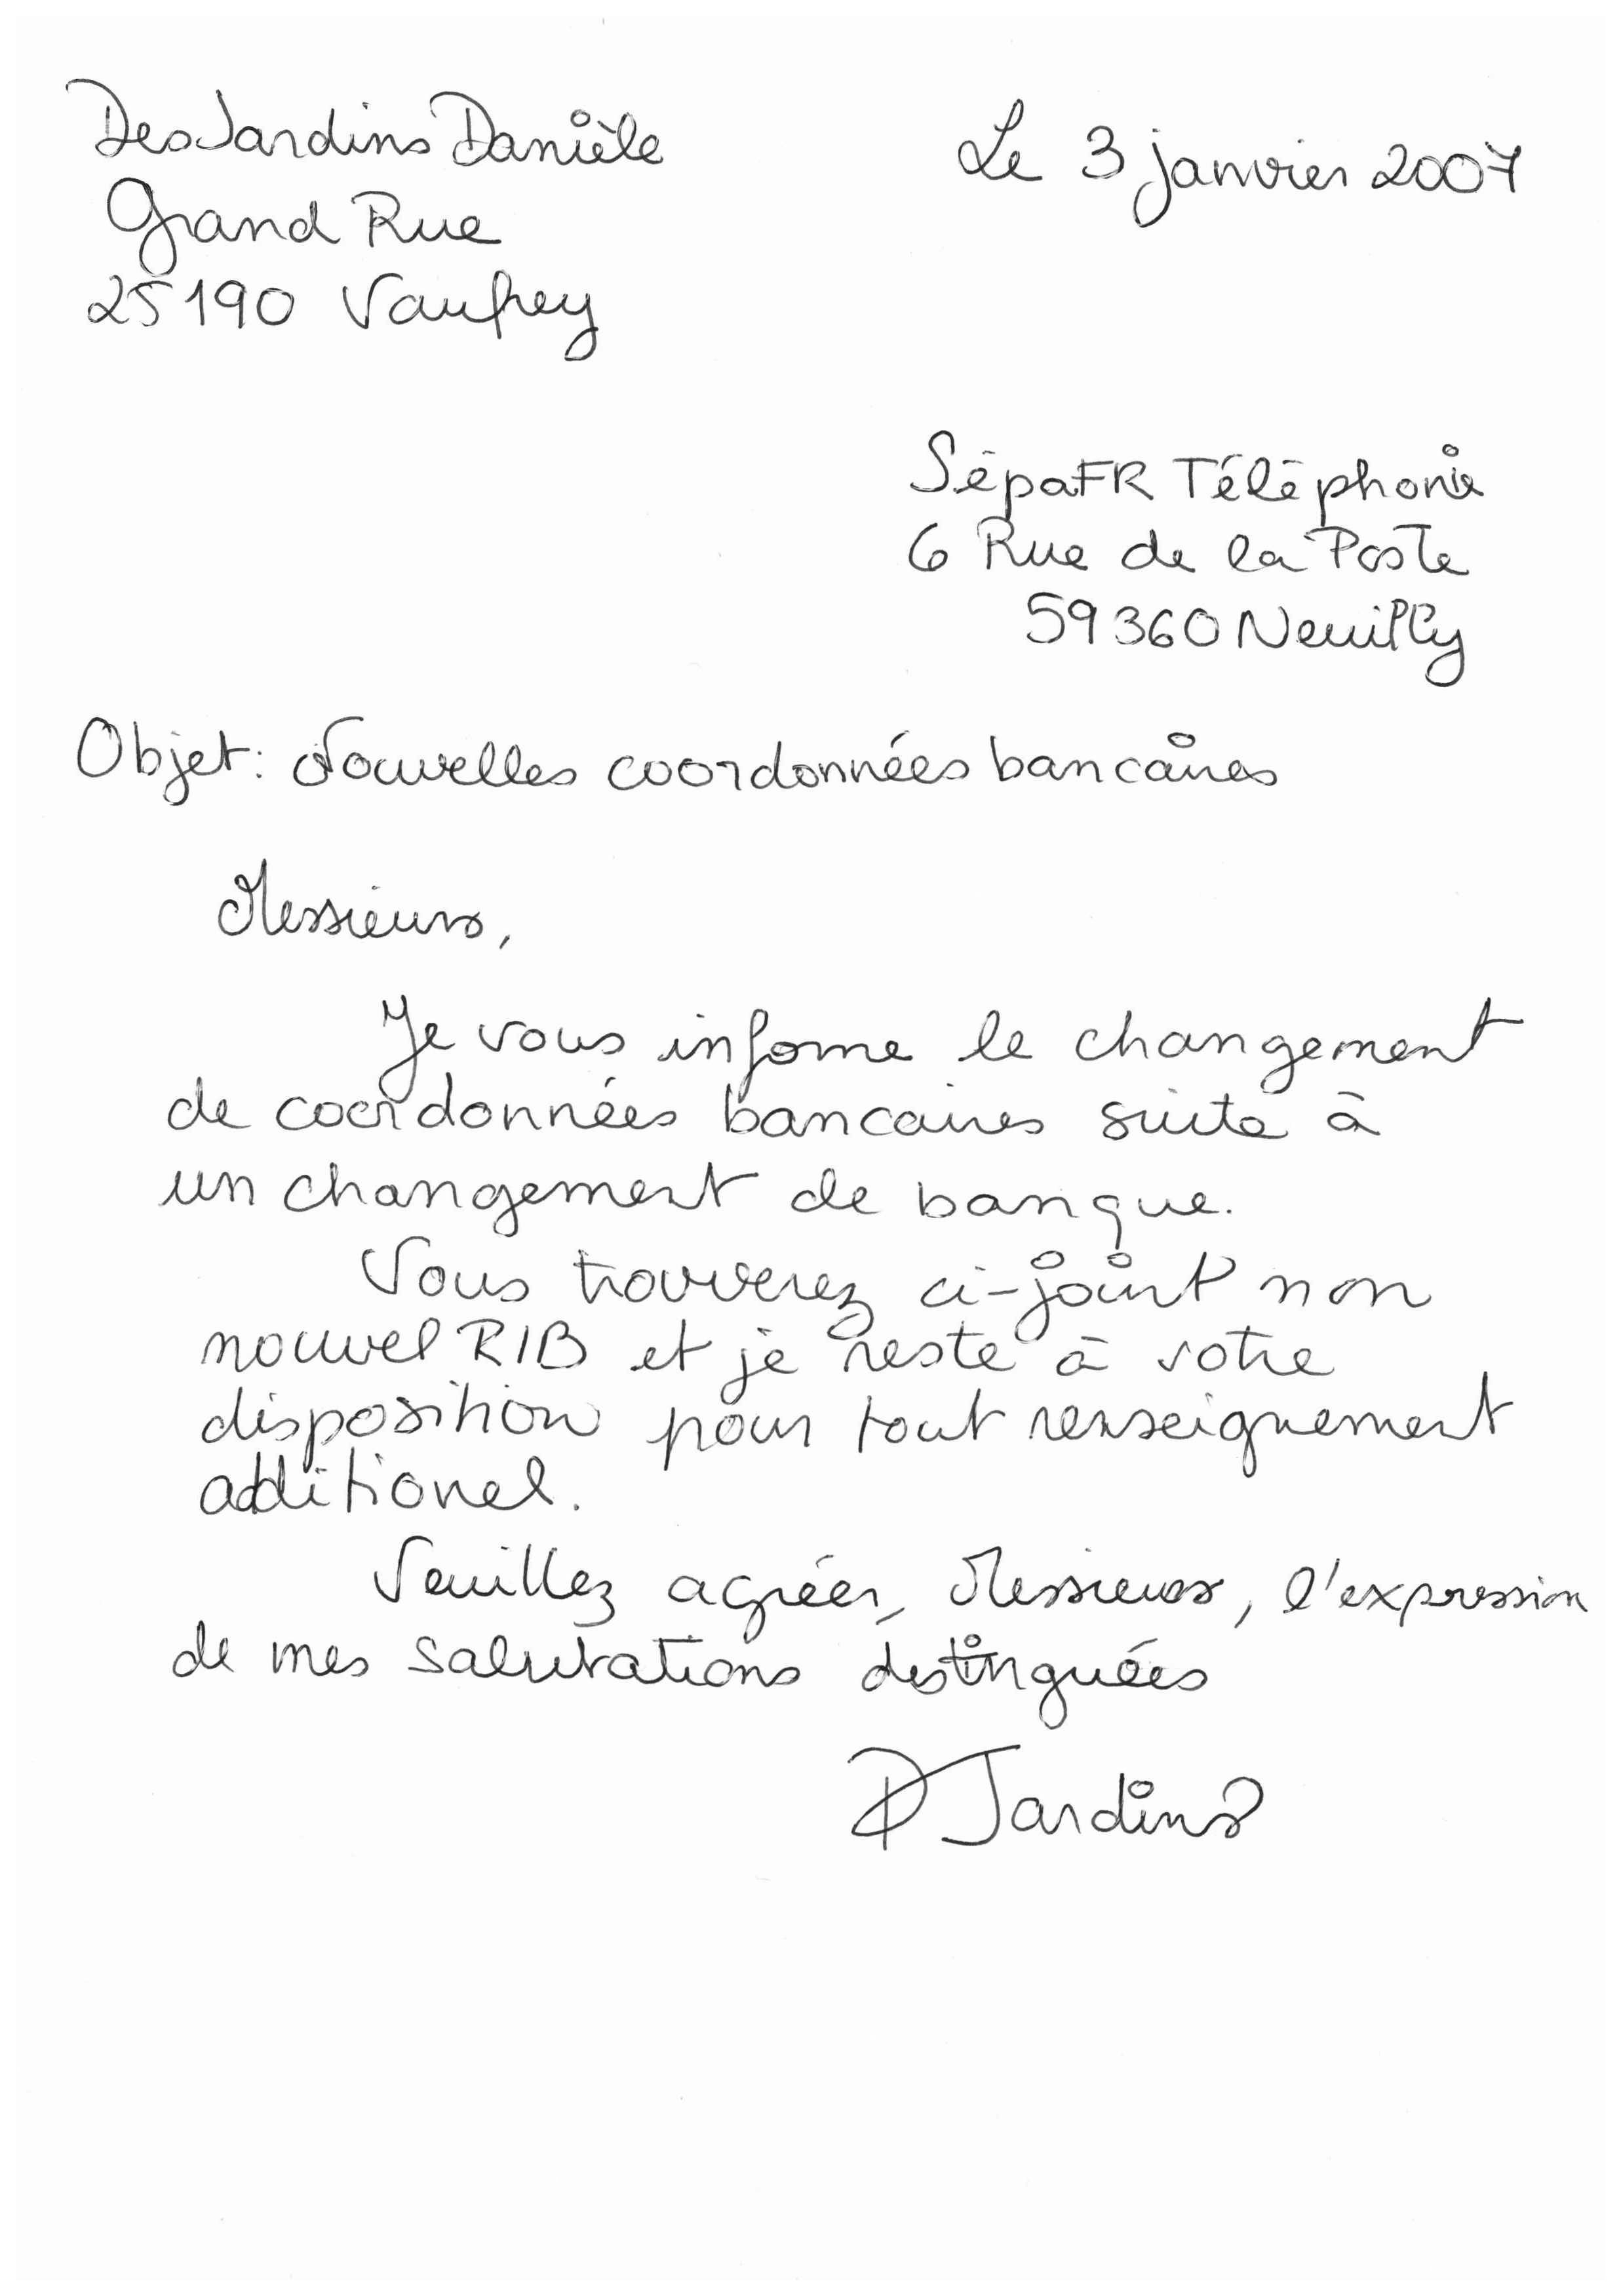 DesJardins Danièle
Le 3 janvier 2007
Grand Rue
25190 Vaufrey
SépaFR Téléphonie
6 Rue de la Poste
59360 Neuilly
Objet: Nouvelles coordonnées bancaires
Messieurs,
Je vous informe le changement
de coordonnées bancaires suite à
un changement de banque.
Vous trouverez ci-joint mon
nouvel RIB et je reste à votre
disposition pour tout renseignement
additionel.
Veuillez agréer, Messieurs, l'expression
de mes salutations distinguées
D Jardins